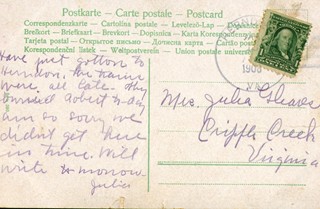 Postkarte – Carte postale – Postcard
Correspondenzkarte – Cartolina postale – Levelező-Lap
Brefkort – Briefkaart – Brevkort – Dopisnica – Karta Korespondencyjna
Tarjeta postal – Открытое письмо – Дописна карта
Korespondenční lístek – Weltpostverein – Union postale universelle
Have just gotten to
Herndon. The trains
were all late. They
buried Robert today
am so sorry we
didn't get here
in time. Will
write tomorrow
Julia
1908
VA.
Mrs. Julia
Cripple Creek
Virginia